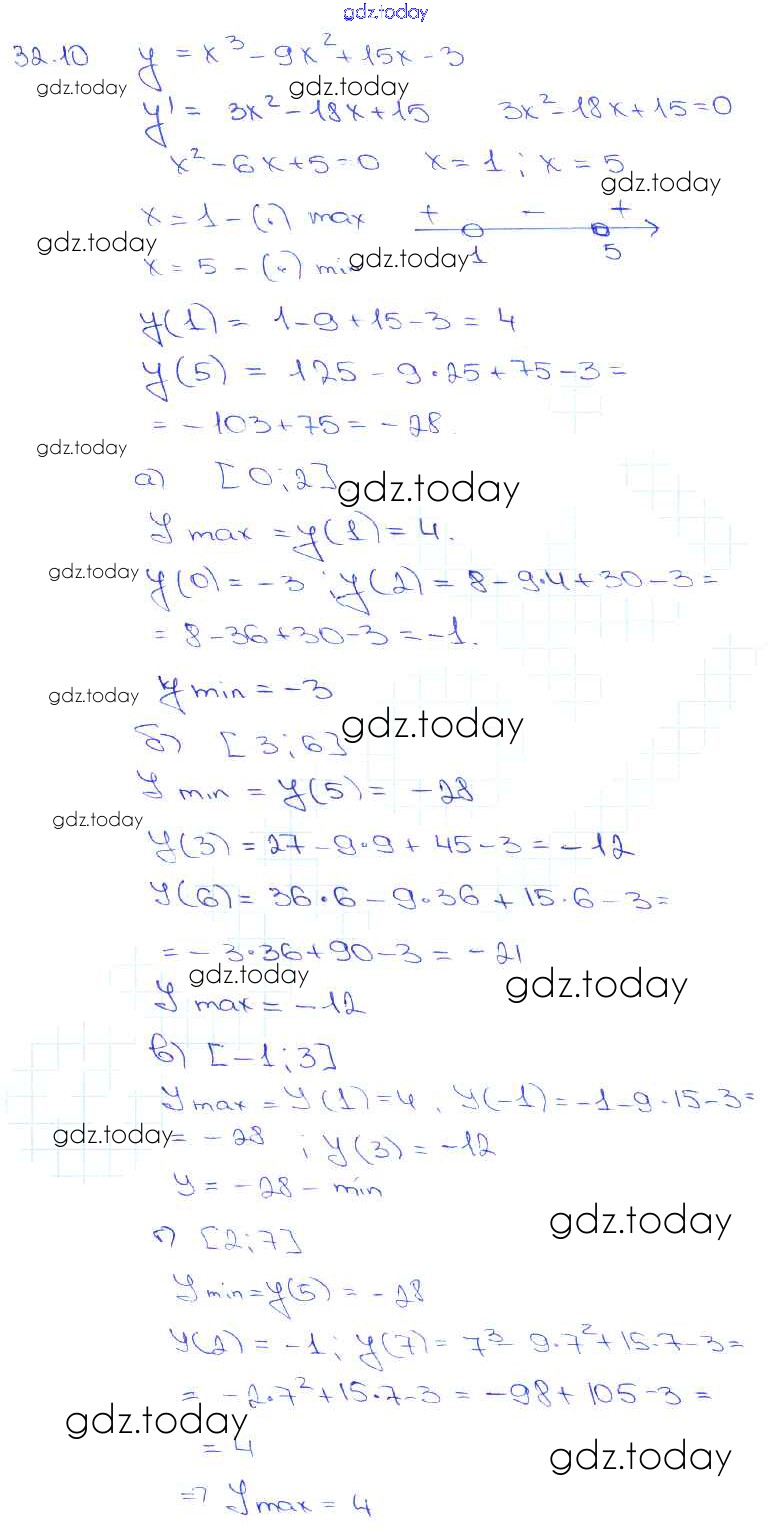 gdz.today
32.10 y = x³ - 9x² + 15x - 3
gdz.today gdz.today
y' = 3x² - 18x + 15 3x² - 18x + 15 = 0
x² - 6x + 5 = 0 x = 1 ; x = 5
gdz.today
x = 1 - (.) max + - +
gdz.today
x = 5 - (.) min gdz.today 1 5
y(1) = 1 - 9 + 15 - 3 = 4
y(5) = 125 - 9·25 + 75 - 3 =
= -103 + 75 = -28
gdz.today
а) [0;2] gdz.today
y max = y(1) = 4.
gdz.today y(0) = -3 ; y(2) = 8 - 9·4 + 30 - 3 =
= 8 - 36 + 30 - 3 = -1.
gdz.today y min = -3
gdz.today
б) [3;6]
y min = y(5) = -28
gdz.today
y(3) = 27 - 9·9 + 45 - 3 = -12
y(6) = 36·6 - 9·36 + 15·6 - 3 =
= -3·36 + 90 - 3 = -21
gdz.today gdz.today
y max = -12
в) [-1;3]
y max = y(1) = 4. y(-1) = -1 - 9 - 15 - 3 =
gdz.today = -28 ; y(3) = -12
y = -28 - min
gdz.today
г) [2;7]
y min = y(5) = -28
y(2) = -1; y(7) = 7³ - 9·7² + 15·7 - 3 =
= -2·7² + 15·7 - 3 = -98 + 105 - 3 =
gdz.today
= 4
gdz.today
=> y max = 4